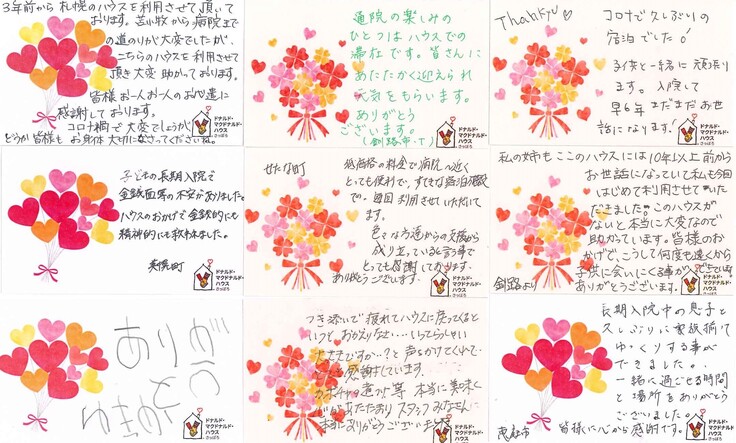 3年前から札幌のハウスを利用させて頂いて
おります。苫小牧から病院まで
の道のりが大変でしたが、
こちらのハウスを利用させて
頂き大変助かっております。
皆様お一人お一人のお心遣いに
感謝しております。
コロナ禍で大変でしょうが
どうか皆様も お身体大切になさってくださいね。
ドナルド・マクドナルド・ハウス
さっぽろ
通院の楽しみの
ひとつはハウスでの
滞在です。皆さんに
あたたかく迎えられ
元気をもらいます。
ありがとう
ございます。
(釧路市・T)
ドナルド・マクドナルド・ハウス
さっぽろ
Thankyu♡
コロナで久しぶりの
宿泊でした!
子供と一緒に頑張り
ます。入院して
早6年まだまだお世
話になります!
ドナルド・マクドナルド・ハウス
さっぽろ
子どもの長期入院で
金銭面等の不安がありました。
ハウスのおかげで金銭的にも
精神的にも救われました。
美幌町
ドナルド・マクドナルド・ハウス
さっぽろ
せたな町
低価格の料金で病院へ近く
とっても便利で、すてきな宿泊施設
で、毎回利用させていただいて
ます。
色々な方達からの支援から
成り立っていると言う事で
とっても感謝しております。
ありがとうございます。
私の姉もここのハウスには10年以上前から
お世話になっていて私も今回
はじめて利用させていた
だきました。このハウスが
ないと本当に大変なので
助かっています。皆様のお
かげで、こうして何度も遠くから
子供に会いにくる事ができています
ありがとうございます。
釧路より
ありが
とう
ゆきが
ドナルド・マクドナルド・ハウス
さっぽろ
つき添いで疲れてハウスに戻ってくると
いつも、おかえりなさい…いってらっしゃい
と声をかけてくれて
感謝しています。
本当に美味く
スタッフみなさんに
本当にありがとうございます
長期入院中の息子と
久しぶりに家族揃って
ゆっくりする事が
できました。
一緒に過ごせる時間
と場所をありがとう
ございました。
皆様に心から感謝です。
恵庭市
ドナルド・マクドナルド・ハウス
さっぽろ